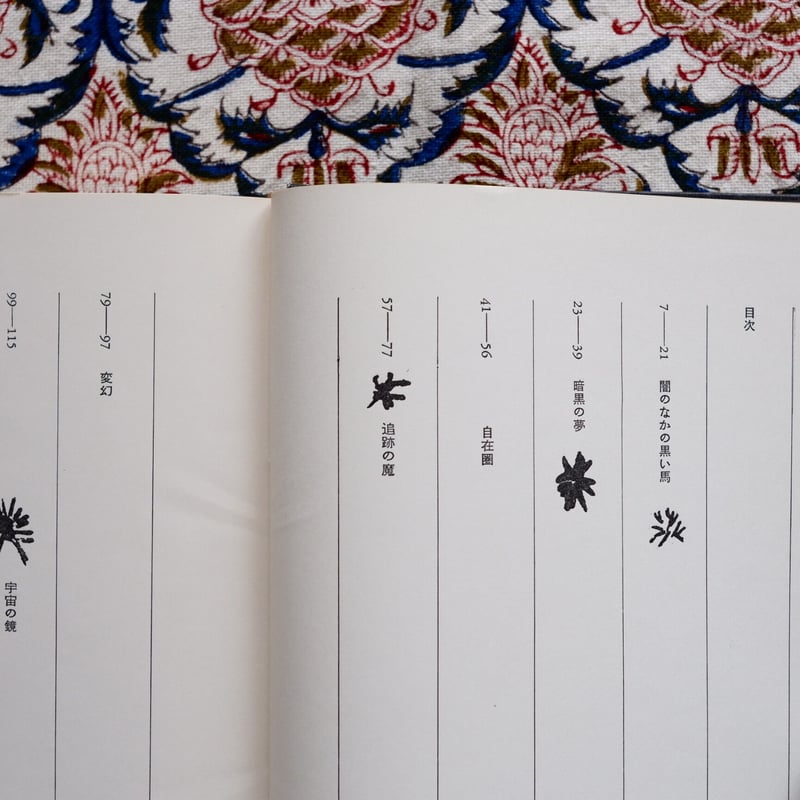 目次
7——21 闇のなかの黒い馬
23——39 暗黒の夢
41——56 自在圏
57——77 追跡の魔
79——97 変幻
99——115 宇宙の鏡